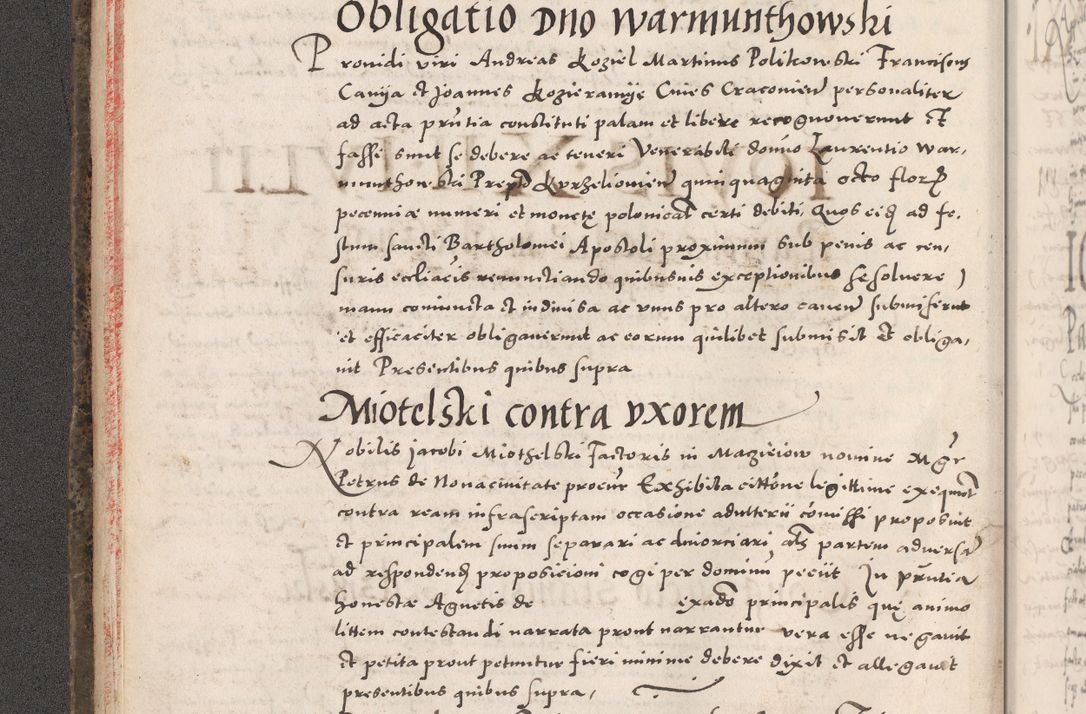 Obligatio Dno Warmunthowski
Prouidi viri Andreas Koziel Martinus Politkowski Franciscus
Caniia et Joannes Kozieramije Ciues Cracouien personaliter
ad acta pruntia constituti palam et libere recognouerunt Et
fassi sunt se debere ac teneri Venerabili domino Laurentio War,
munthowski Prepto Kurzelouien quinquaginta octo flor
pecuniæ numeri et monetę polonicat certi debiti, Quos eid ad fe,
stum sancti Bartholomei Apostoli proximum sub penis ac cen,
suris ecclacis renunctiando quibusuis exceptionibus se soluere
manu coniuncta et indiuisa ac vnus pro altero cauen submiserunt
et efficaciter obligauerunt ac eorum quilibet submisit Et obliga,
uit Presentibus quibus supra
Miotelski contra vxorem
Nobilis jacobi Miothelski Factoris in Magieiow nomine Mgr
Petrus de Nouaciuitate procur Exhibita cittone legittime exequut
contra ream infrascriptam occasione adulterii comissi proposuit
et principalem suum separari ac diuorciari als partem aduersa
ad respondend proposicioni cogi per dominu peciit In pruntia
honestæ Agnetis de exado principalis quę animo
littem contestandi narrata prout narrantur vera esse negauit
et petita prout petuntur fieri minime debere dixit et allegauit
presentibus quibus supra,